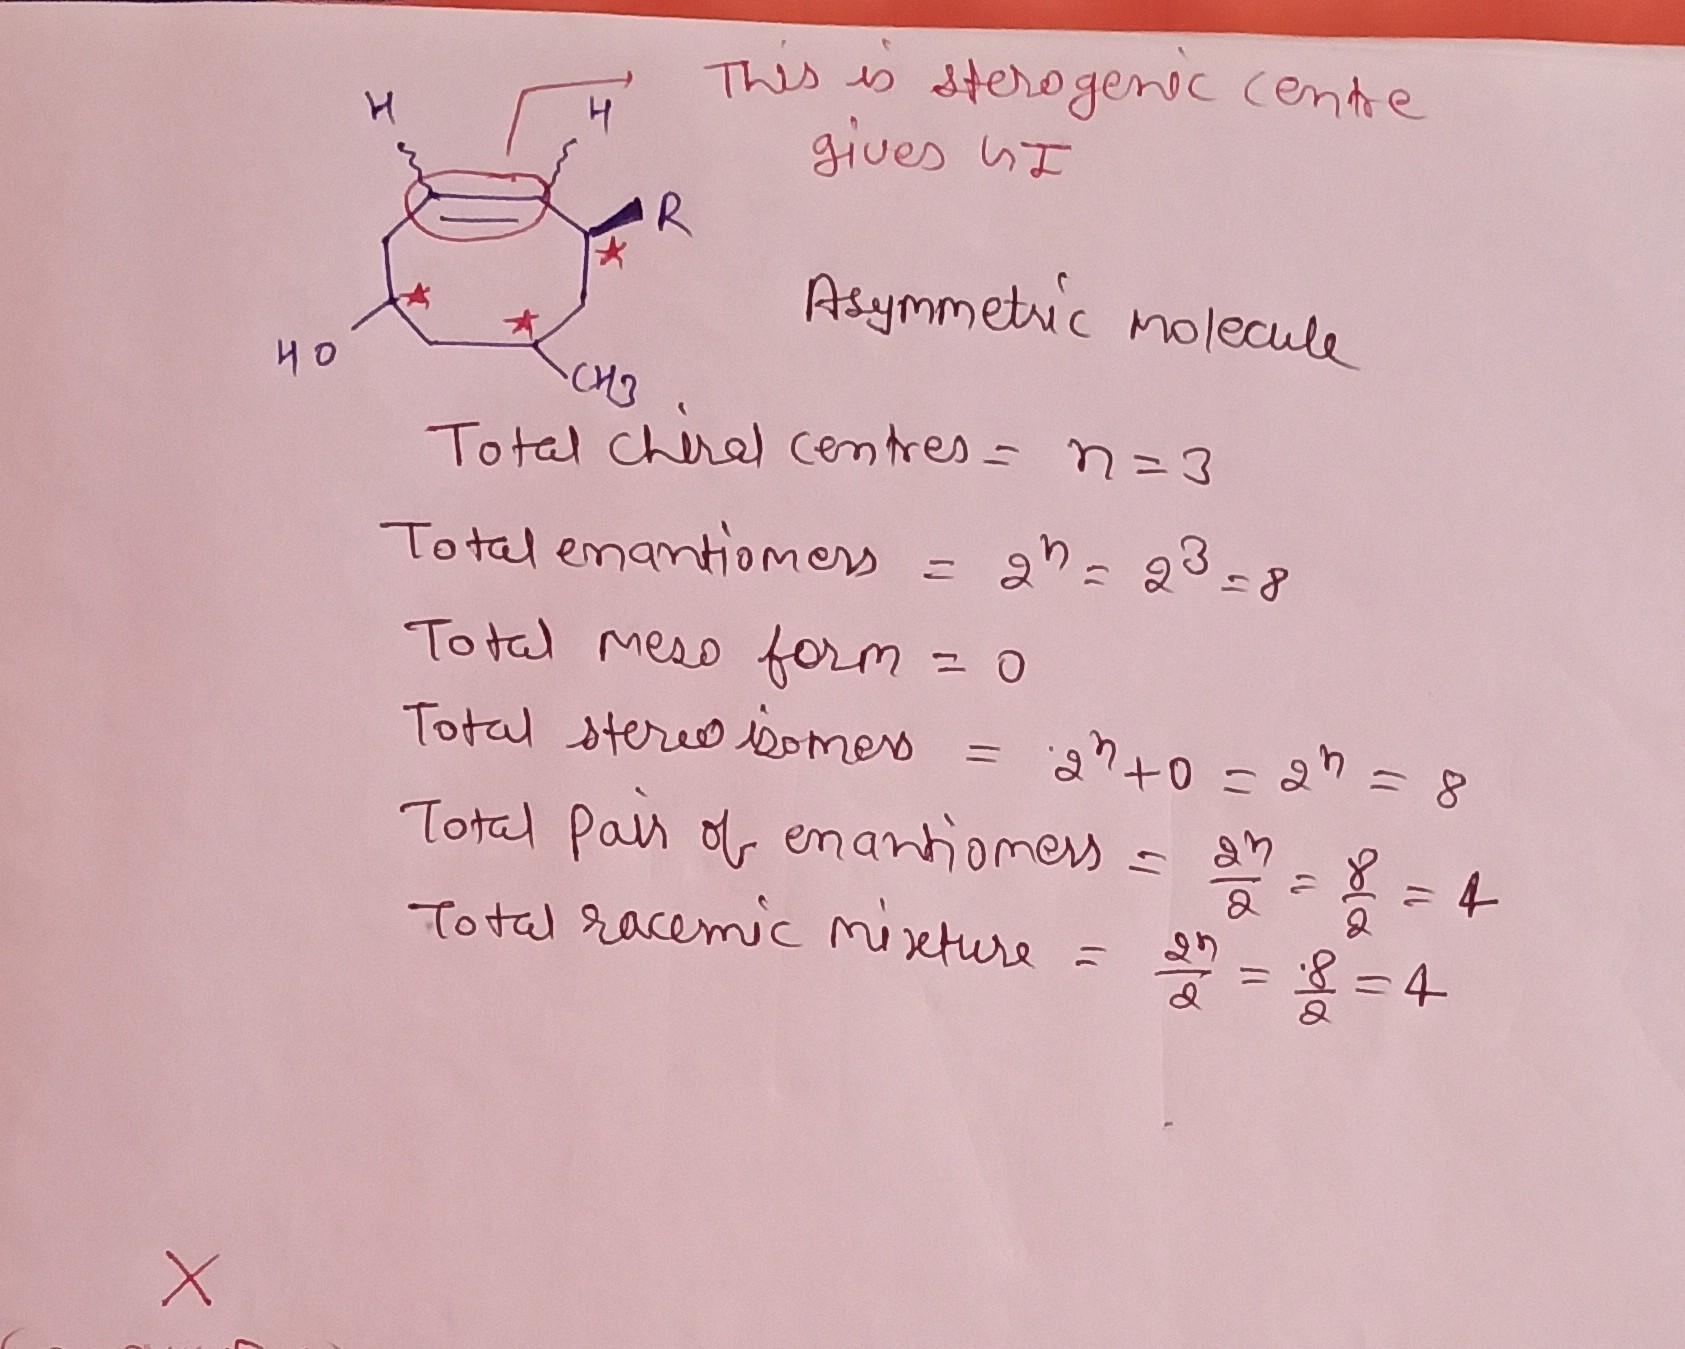 This is sterogenic centre
gives GI
H H
R
HO
CH3
Asymmetric Molecule
Total chiral centres = n = 3
Total enantiomers = 2ⁿ = 2³ = 8
Total meso form = 0
Total stereo isomers = 2ⁿ + 0 = 2ⁿ = 8
Total Pair of enantiomers = 2ⁿ/2 = 8/2 = 4
Total racemic mixture = 2ⁿ/2 = 8/2 = 4
X